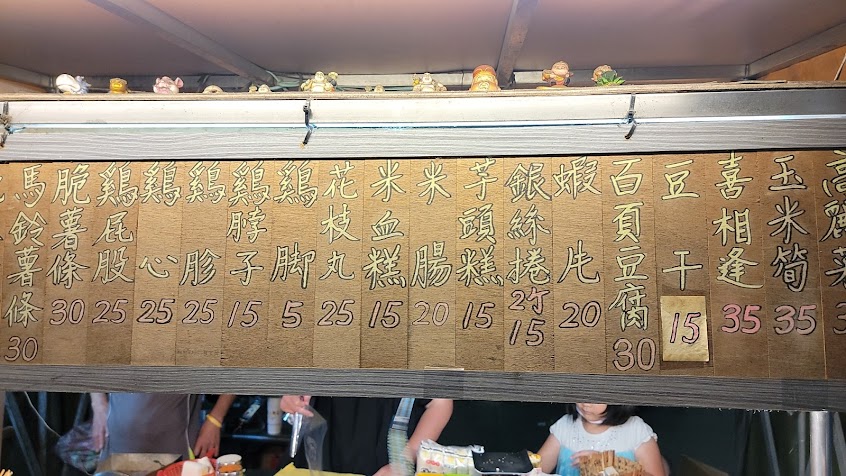 馬鈴薯條 30
脆薯條 30
鷄屁股 25
鷄心 25
鷄胗 25
鷄脖子 15
鷄脚 5
花枝丸 25
米血糕 15
米腸 20
芋頭糕 15
銀絲捲 2个 15
蝦片 20
百頁豆腐 30
豆干 15
喜相逢 35
玉米筍 35
高麗菜